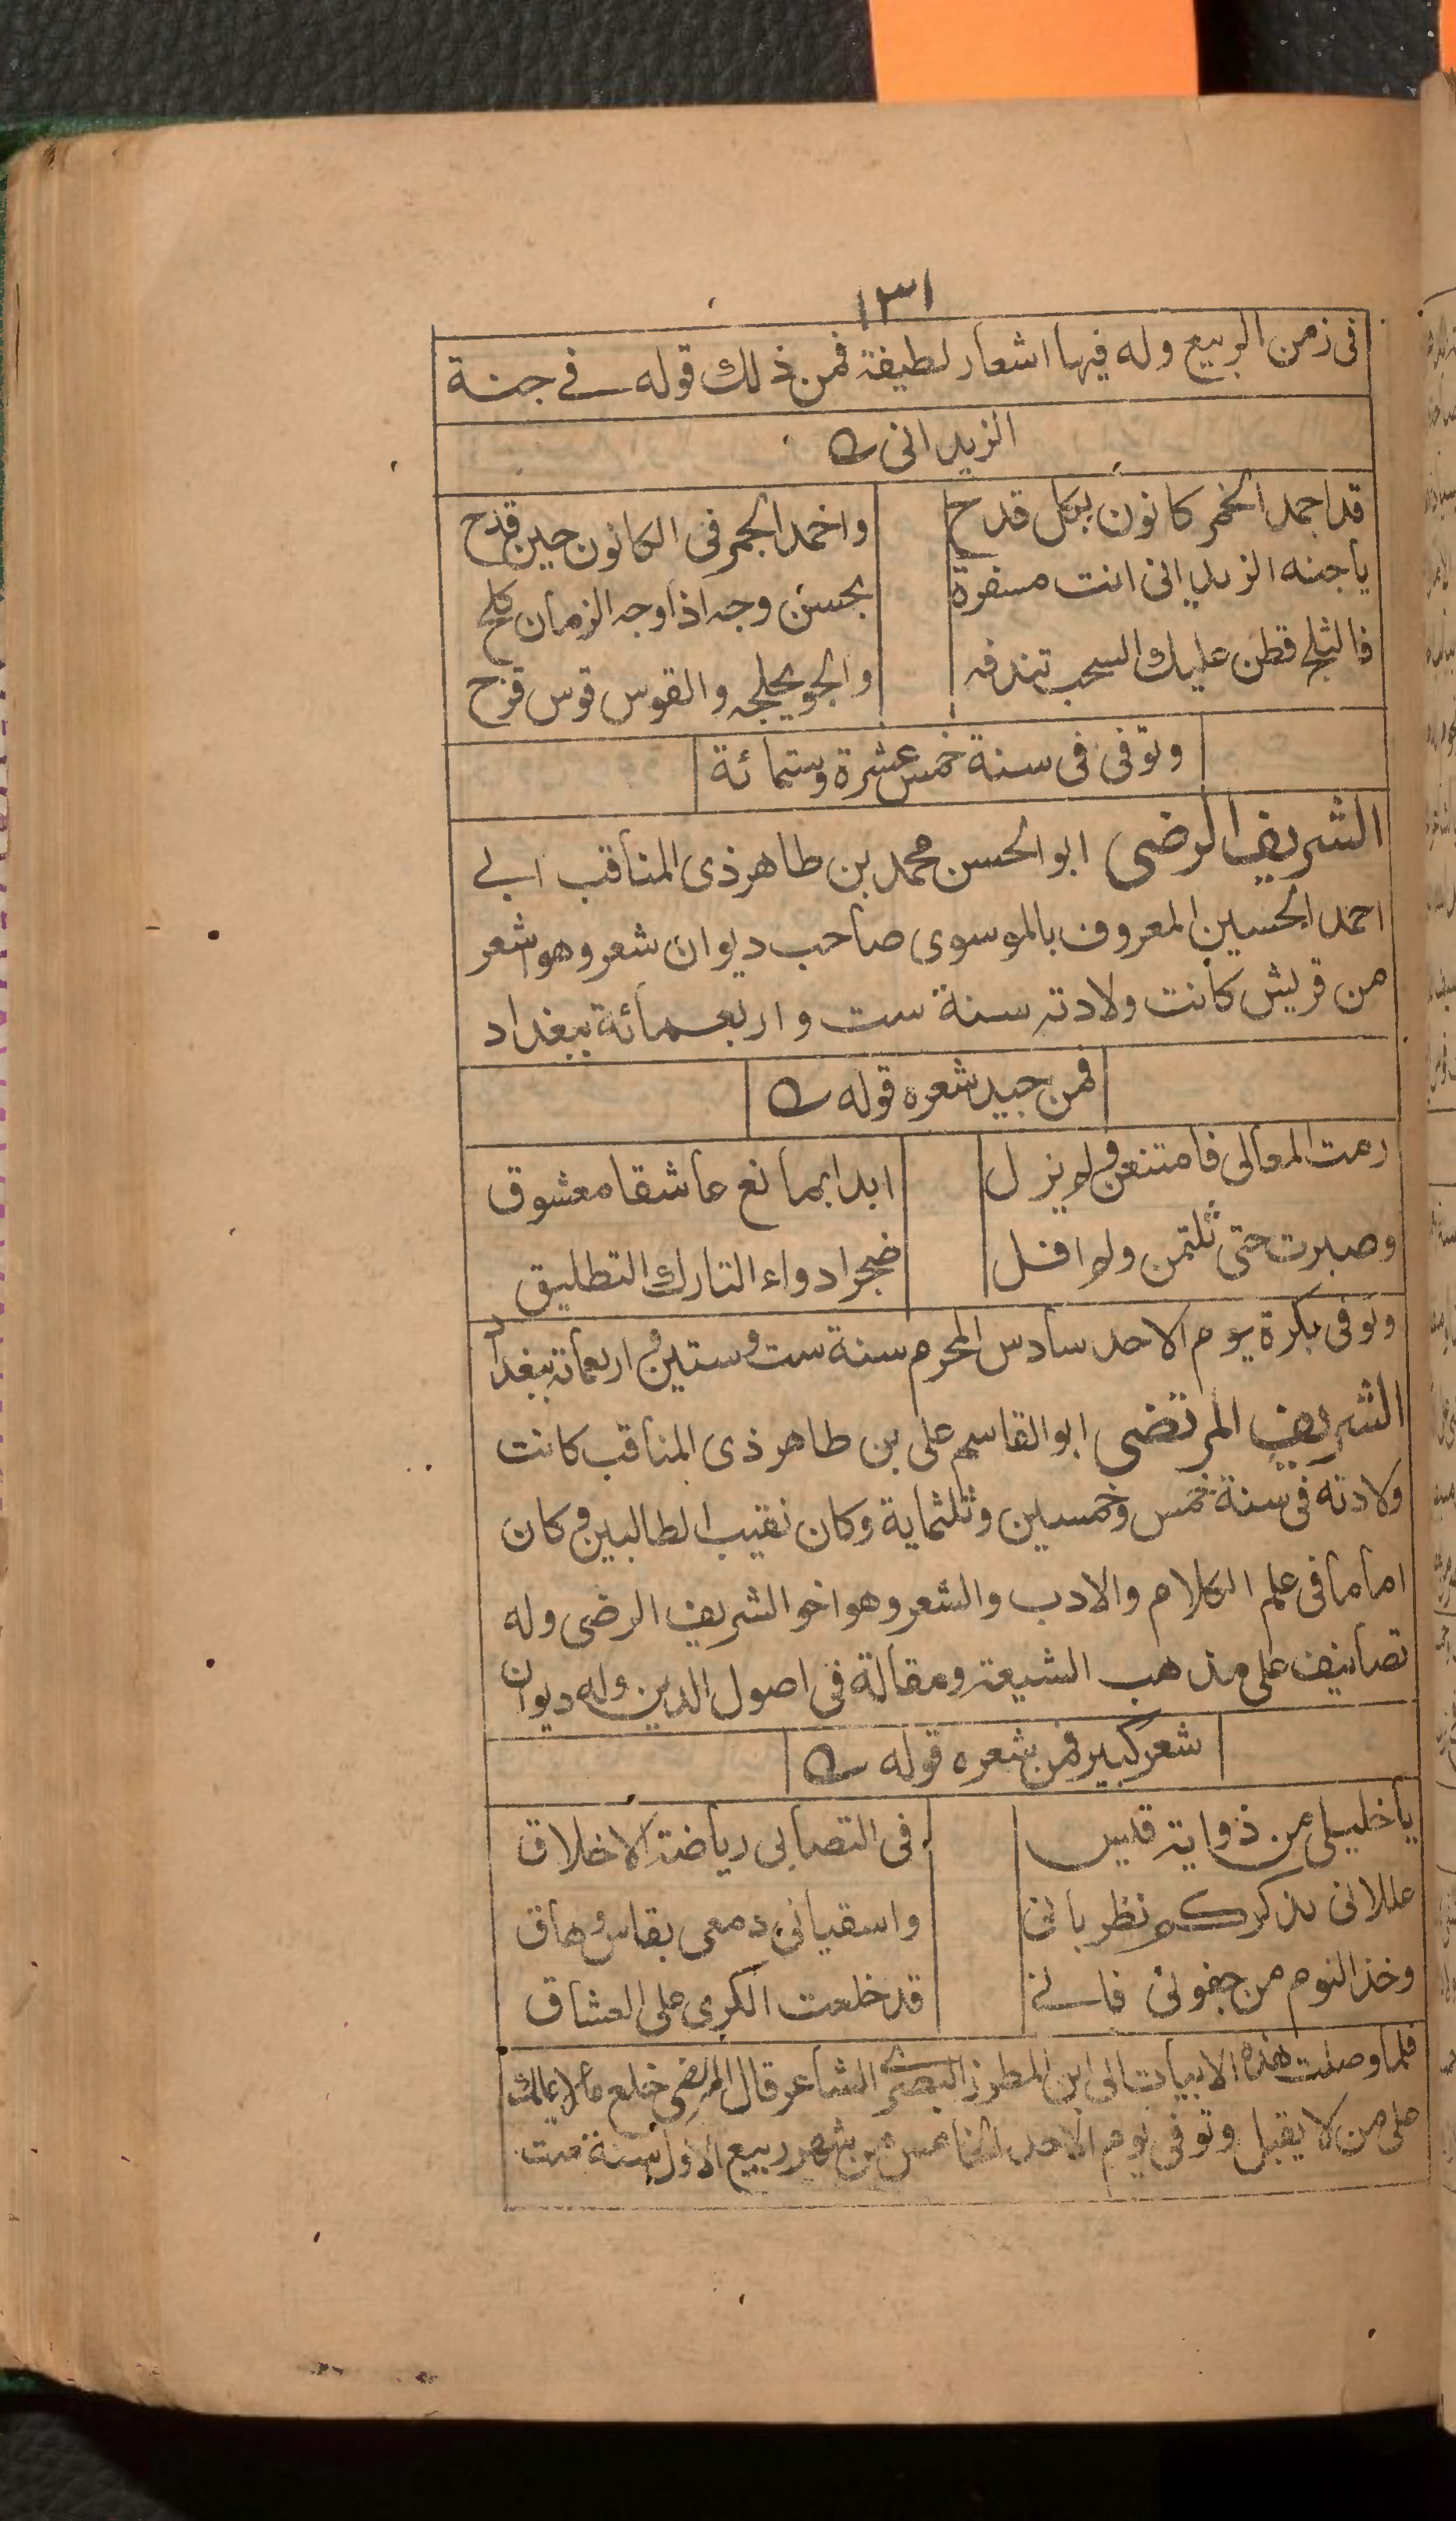 ١٣١
فى زمن الربيع وله فيها اشعار لطيفة فمن ذلك قوله فے جنة
الزبدانى
قد اجمد الخمر كانون بكل قدح واخمد الجمر فى الكانون حين قدح
ياجنه الزبدانى انت مسفرة بحسن وجه اذا وجه الزمان كلح
فالثلج قطن عليك السحب تندفه والجو يحلجه والقوس قوس قزح
وتوفى فى سنة خمس عشرة وستمائة
الشريف الرضى ابوالحسن محمد بن طاهر ذى المناقب ابے
احمد الحسين المعروف بالموسوى صاحب ديوان شعر وهو اشعر
من قريش كانت ولادته سنة ست واربعمائة ببغداد
فمن جيد شعره قوله
رمت المعالى فامتنعن ولم يزل ابدا يمانع عاشقا معشوق
وصبرت حتى نلتمن ولم اقل ضجرا دواء التارك التطليق
وتوفى بكرة يوم الاحد سادس المحرم سنة ست وستين واربعمائة ببغداد
الشريف المرتضى ابوالقاسم على بن طاهر ذى المناقب كانت
ولادته فى سنة خمس وخمسين وثلثماية وكان نقيب الطالبين وكان
اماما فى علم الكلام والادب والشعر وهو اخو الشريف الرضى وله
تصانيف على مذهب الشيعة ومقالة فى اصول الدين وله ديوان
شعر كبير فمن شعره قوله
ياخليلى من ذوابة قيس فى التصابى رياضة الاخلاق
عللانى بذكركم نظربانى واسقيانى دمعى بقاس وهاق
وخذ النوم من جفونى فانے قد خلعت الكرى على العشاق
فلما وصلت هذه الابيات الى ابن المطرز البصرى الشاعر قال المرتضى خلع مالا يملك
على من لا يقبل وتوفى يوم الاحد الخامس من شهر ربيع الاول سنة ست